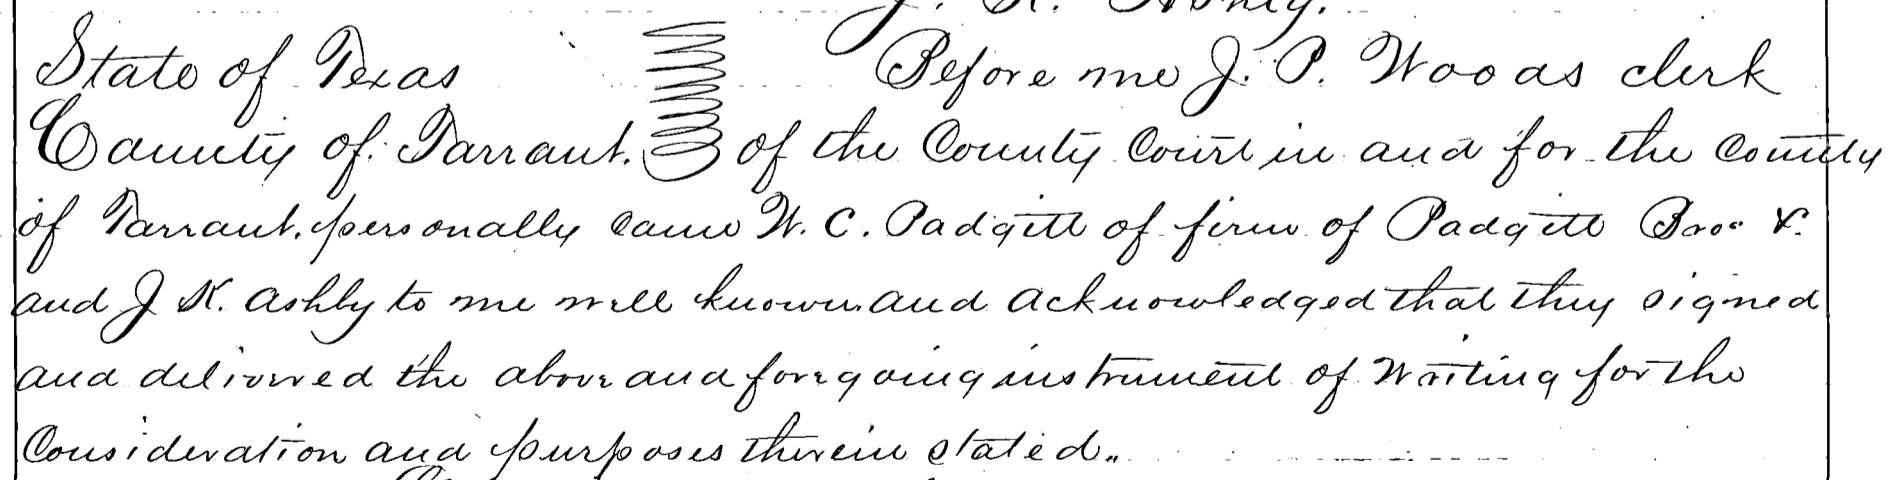 J. K. Ashly.
State of Texas Before me J. P. Woods clerk
County of Tarrant. of the County Court in and for the County
of Tarrant. personally came W. C. Padgitt of firm of Padgitt Bros &.
and J K. Ashly to me well known and acknowledged that they signed
and delivered the above and foregoing instrument of Writing for the
Consideration and purposes therein stated..